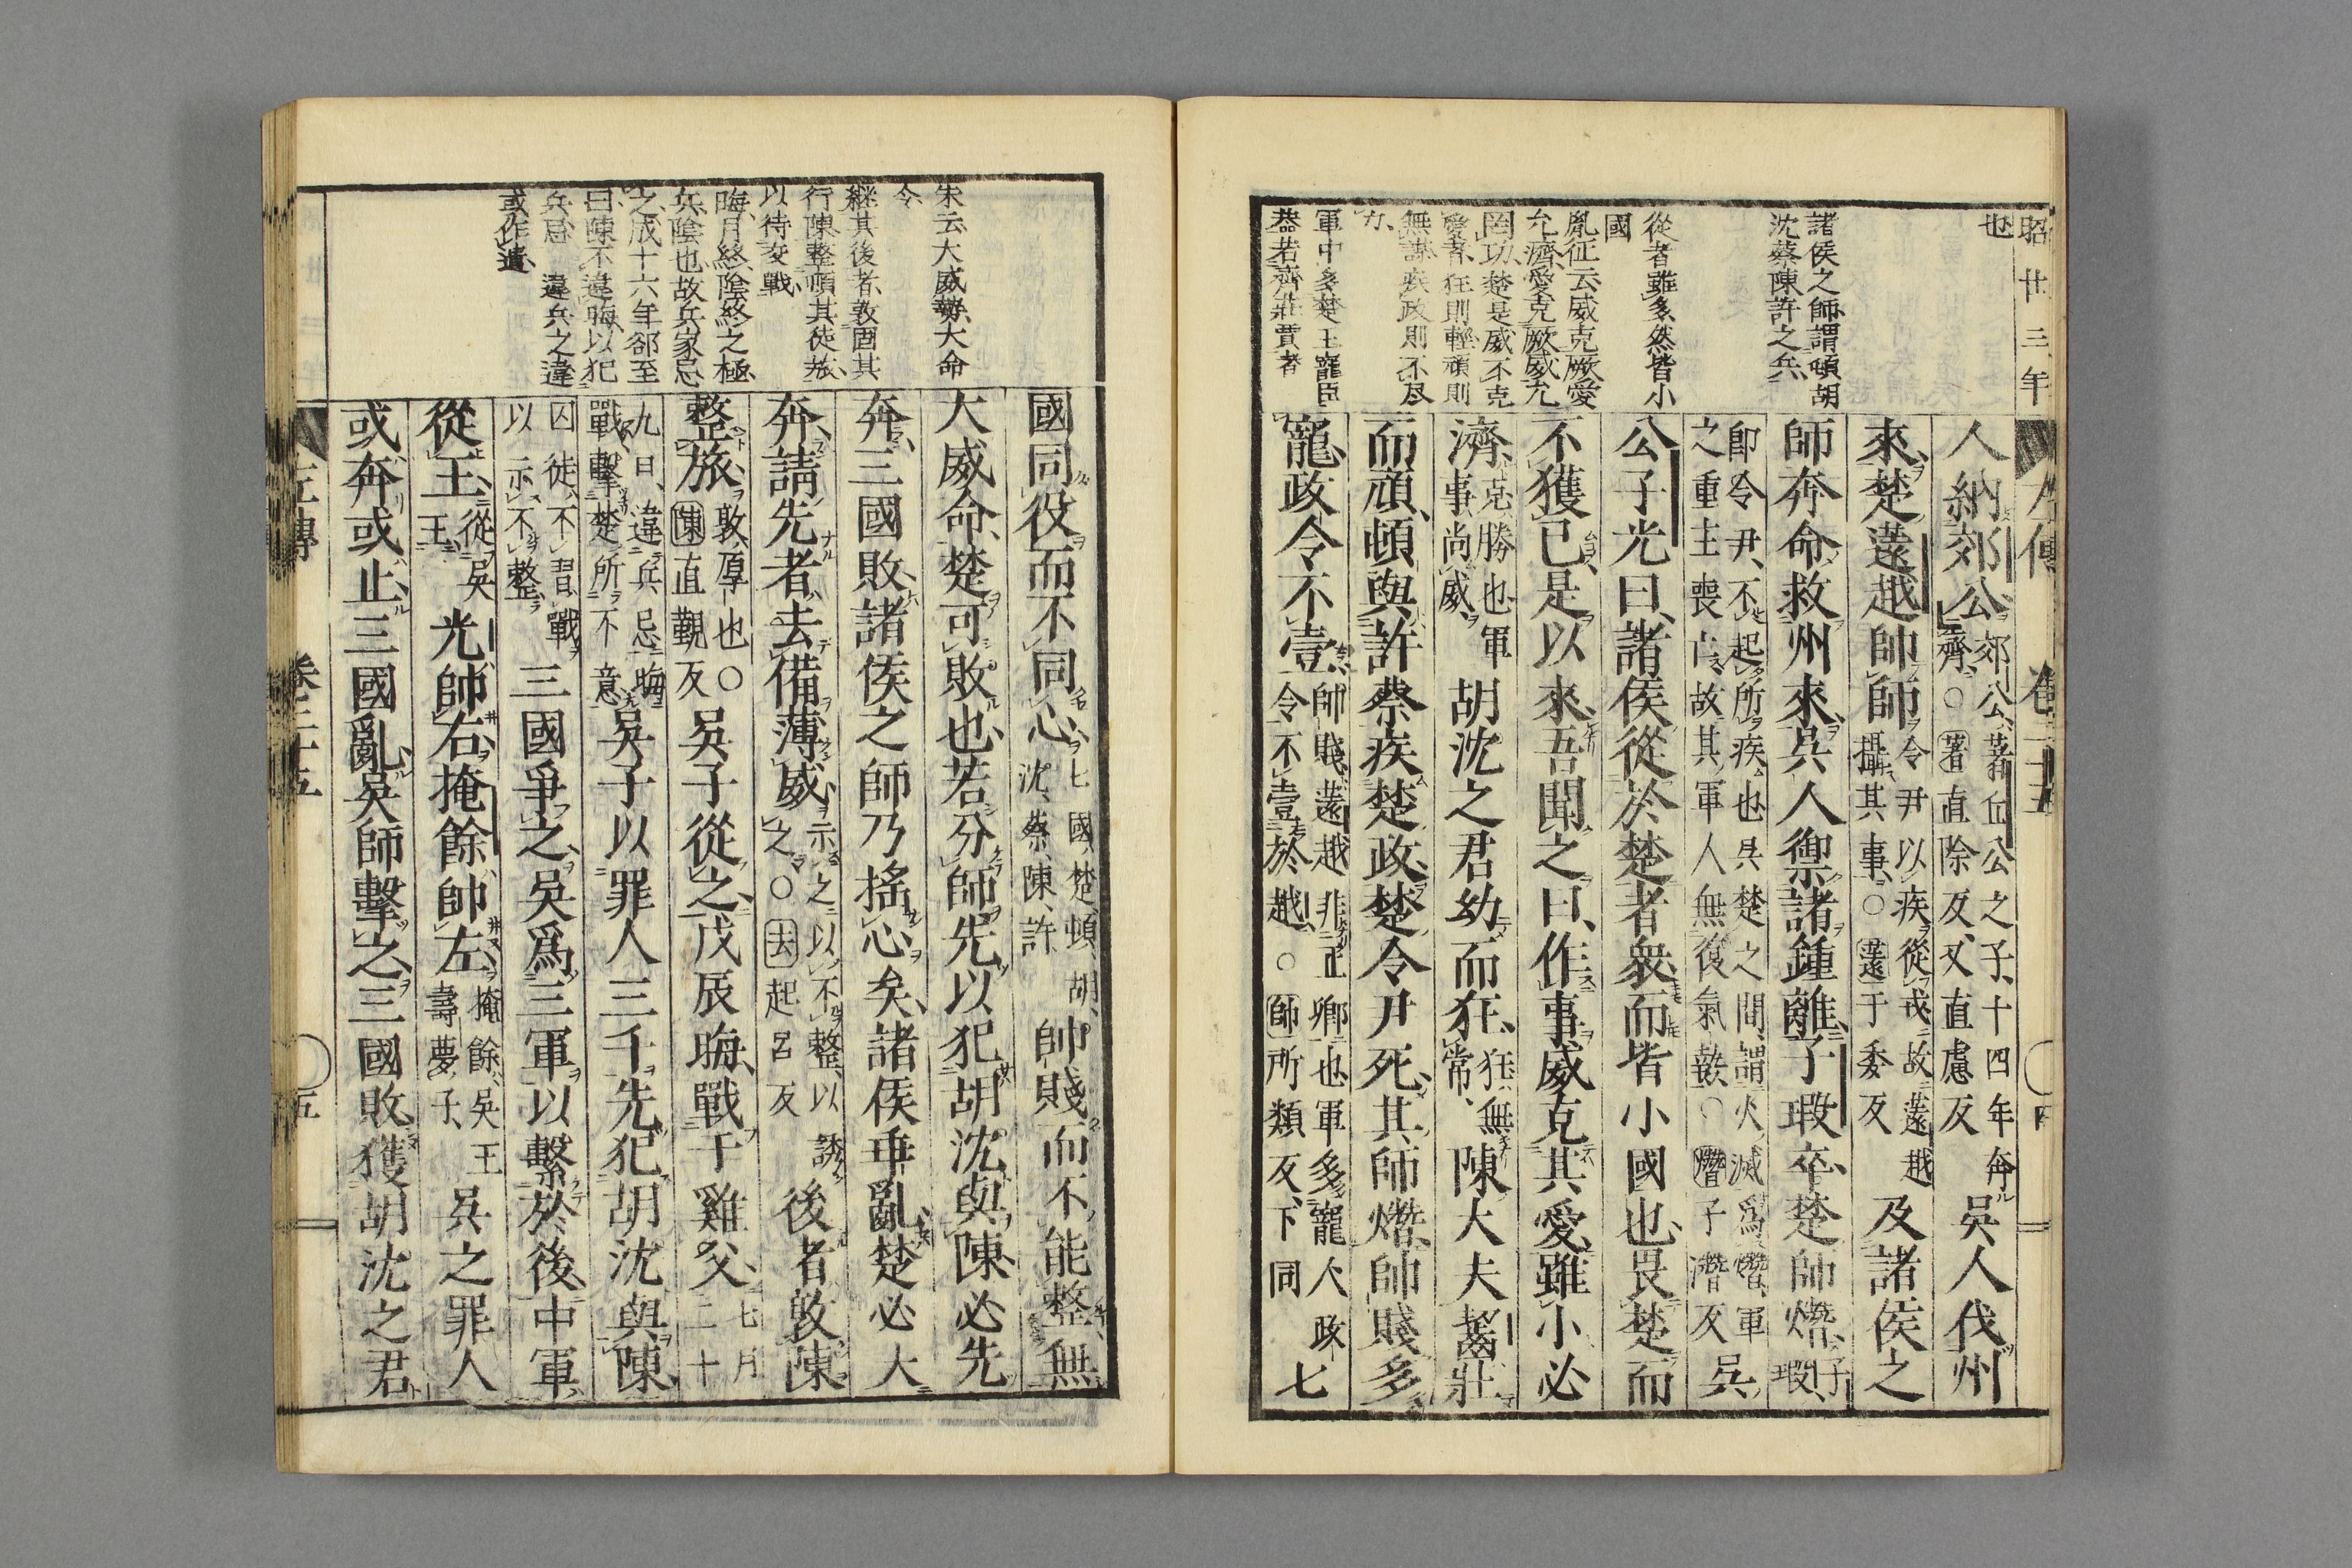 昭廿三年
左傳 卷二十五 四
也
諸侯之師謂頓胡
沈蔡陳許之兵
從者雖多然皆小
國
胤征云威克厥愛
允濟愛克厥威允
罔功楚是威不克
愛者狂則輕頑則
無謀疾政則不尽
力
軍中多楚王寵臣
恭若齊莊賈者
人納郊公郊公著丘公之子十四年奔
齊○著直除反又直慮反吳人伐州
來楚薳越帥師令尹以疾從戎故薳越
攝其事○薳于委反及諸侯之
師奔命救州來吳人禦諸鍾離子瑕卒楚師熸子
瑕
即令尹不起所疾也吳楚之間謂火滅爲熸軍
之重主喪亡故其軍人無復氣埶○熸子潛反吳
公子光曰諸侯從於楚者衆而皆小國也畏楚而
不獲已是以來吾聞之曰作事威克其愛雖小必
濟克勝也軍
事尚威胡沈之君幼而狂狂無
常陳大夫齧壯
而頑頓與許蔡疾楚政楚令尹死其師熸帥賤多
寵政令不壹帥賤薳越非正卿也軍多寵人政
令不壹於越○帥所類反下同七
朱云大威勢大命
令
継其後者敦固其
行陳整頓其徒旅
以待交戰
晦月終陰終之極
兵陰也故兵家忌
之成十六年郤至
曰陳不違晦以犯
兵忌 違兵之違
或作遺
國同役而不同心七國楚頓胡
沈蔡陳許帥賤而不能整無
大威命楚可敗也若分師先以犯胡沈與陳必先
奔三國敗諸侯之師乃搖心矣諸侯乖亂楚必大
奔請先者去備薄威示之以不整以誘
之○去起呂反後者敦陳
整旅敦厚也○
陳直覲反吳子從之戊辰晦戰于雞父七月
二十
九日違兵忌晦
戰擊楚所不意吳子以罪人三千先犯胡沈與陳
囚徒不習戰
以示不整三國爭之吳爲三軍以繫於後中軍
從王從吳
王光帥右掩餘帥左掩餘吳王
壽夢子吳之罪人
或奔或止三國亂吳師擊之三國敗獲胡沈之君
左傳 卷二十五 五